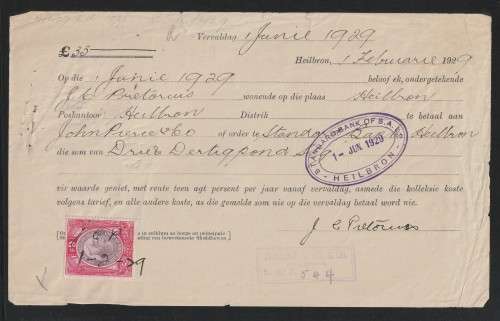 Vervaldag 1 Junie 1929
£35
Heilbron, 1 Februarie 1929
Op die 1 Junie 1929 beloof ek, ondergetekende
J. C. Pretorius wonende op die plaas Heilbron
Poskantoor Heilbron Distrik te betaal aan
John Pierce & Co of order te Standard Bank Heilbron
die som van Drie & Dertig pond
STANDARD BANK OF S.A. LTD
1- JUN 1929
HEILBRON
vir waarde geniet, met rente teen agt persent per jaar vanaf vervaldag, asmede die kolleksie koste
volgens tarief, en alle andere koste, as die gemelde som nie op die vervaldag betaal word nie.
J C Pretorius
544